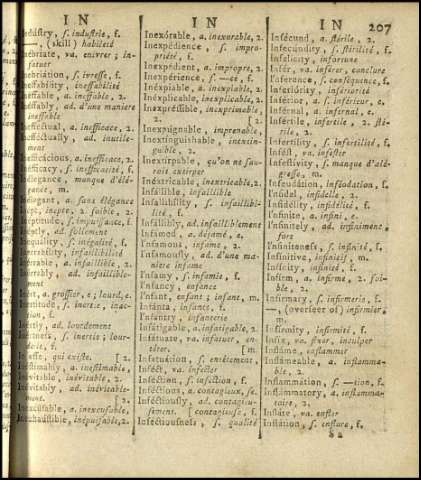 IN
IN
IN
207
Industry, s. industrie, f.
—, (skill) habileté
Inébriate, va. enivrer; in-
fatuer
Inebriátion, s. ivresse, f.
Ineffabílity, ineffabilité
Inéffable, a. ineffable, 2.
Inéffably, ad. d'une maniere
ineffable
Inefféctual, a. inefficace, 2.
Inefféctually, ad. inutile-
ment
Inefficácious, a. inefficace, 2.
Inéfficacy, s. inefficacité, f.
Inélegance, manque d'élé-
gance, m.
Inélegant, a. sans élégance
Inépt, inepte, 2. foible, 2.
Inéptitude, s. impuissance, f.
Inéptly, ad. follement
Inequálity, s. inégalité, f.
Inerrabílity, infaillibilité
Inérrable, a. infaillible, 2.
Inérrably, ad. infaillible-
ment
Inért, a. grossier, e; lourd, e.
Inértitude, s. inertie, inac-
tion, f.
Inértly, ad. lourdement
Inértness, s. inertie; lour-
In esse, qui existe. [2.
Inéstimably, a. inestimable,
Inévitable, inévitable, 2.
Inévitably, ad. inévitable-
ment [2.
Inexcúsable, a. inexcusable,
Inexháustible, inépuisable, 2.
Inéxorable, a. inexorable, 2.
Inexpédience, s. impro-
priété, f.
Inexpédient, a. impropre, 2.
Inexpérience, s. —ce, f.
Inéxpiable, a. inexpiable, 2.
Inéxplicable, inexplicable, 2.
Inexpréssible, inexprimable,
2. [2.
Inexpúgnable, imprenable,
Inextínguishable, inextin-
guible, 2.
Inextírpable, qu'on ne sau-
roit extirper
Inéxtricable, inextricable, 2.
Infállible, infaillible
Infallibílity, s. infaillibi-
lité, f.
Infállibly, ad. infailliblement
Infamed, a. déjamé, e.
Infamous, infame, 2.
Infamously, ad. d'une ma-
niere infame
Infamy, s. infamie, f.
Infancy, enfance
Infant, enfant; infant, m.
Infánta, infante, f.
Infantry, infanterie
Infátigable, a. infatigable, 2.
Infátuate, va. infatuer, en-
têter. [m.
Infatuátion, s. entêtement,
Inféct, va. infecter
Inféction, s. infection, f.
Inféctious, a. contagieux, se.
Inféctiously, ad. contagieu-
sement. [contagieuse, f.
Inféctiousness, s. qualité
Infécund, a. stérile, 2.
Infecúndity, s. stérilité, f.
Infelícity, infortune
Infér, va. inférer, conclure
Inference, s. conséquence, f.
Inferiórity, infériorité
Inférior, a. s. inférieur, e.
Inférnal, a. infernal, e.
Infértile, infertile, 2. sté-
rile, 2.
Infertílity, s. infertilité, f.
Infést, va. infester
Infestívity, s. manque d'allé-
gresse, m.
Infeudátion, inféodation, f.
Infidel, infidelle, 2.
Infidélity, infidélité, f.
Infinite, a. infini, e.
Infinitely, ad. infiniment,
fort
Infiniteness, s. infinité, f.
Infínitive, infinitif, m.
Infínity, infinité, f.
Infírm, a. infirme, 2. foi-
ble, 2.
Infírmary, s. infirmerie, f.
—, (overseer of) infirmier,
m.
Infírmity, infirmité, f.
Infíx, va. fixer, inculper
Infláme, enflammer
Inflámeable, a. inflamma-
ble, 2.
Inflammátion, s. —tion, f.
Inflámmatory, a. inflamma-
toire, 2.
Infláte, va. enfler
Inflátion, s. enflure, f.